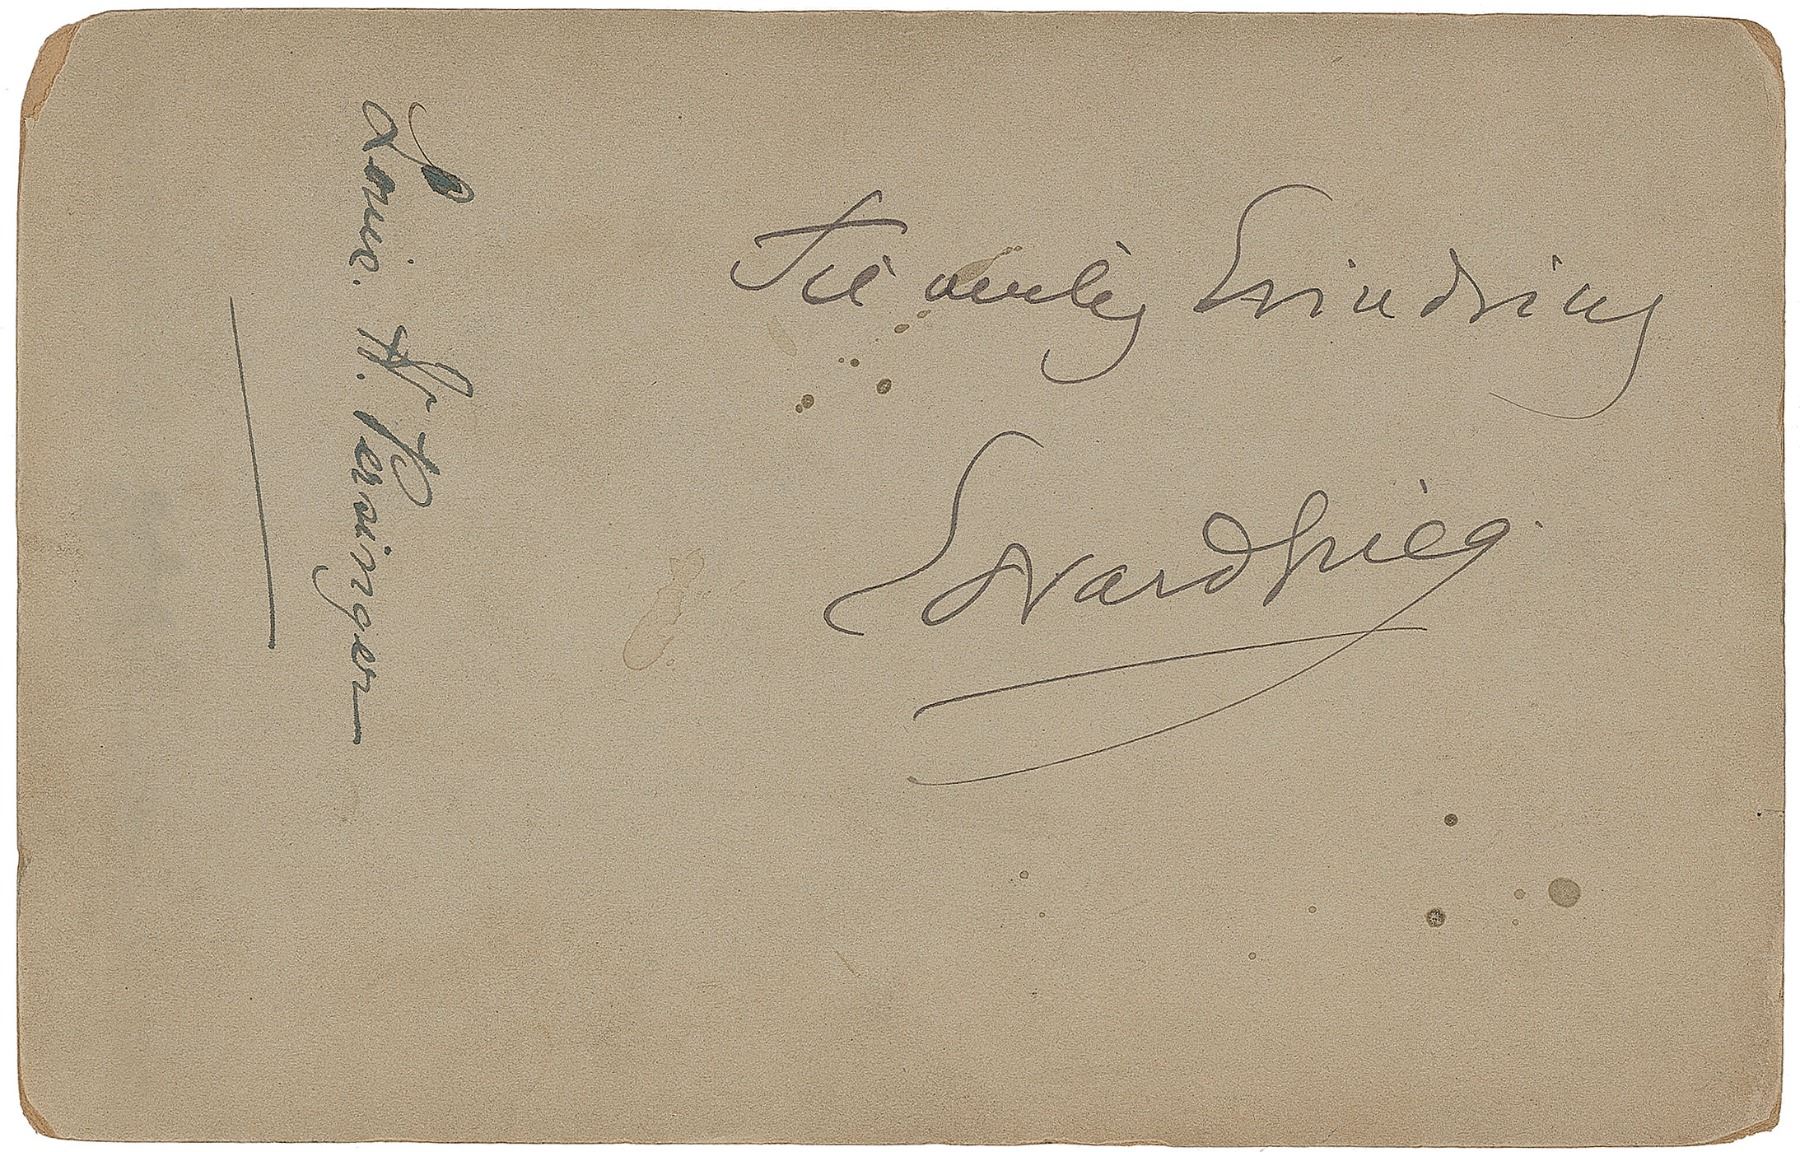 Til venlig Erindring
Edvard Grieg
Louis. H. Persinger